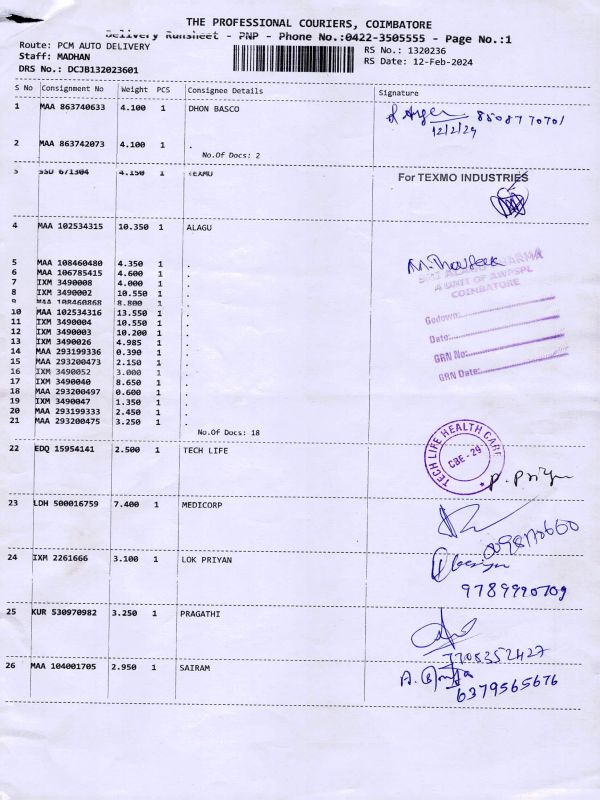 THE PROFESSIONAL COURIERS, COIMBATORE
Delivery Runsheet - PNP - Phone No.:0422-3505555 - Page No.:1
Route: PCM AUTO DELIVERY RS No.: 1320236
Staff: MADHAN RS Date: 12-Feb-2024
DRS No.: DCJB132023601
S No Consignment No Weight PCS Consignee Details Signature
1 MAA 863740633 4.100 1 DHON BASCO
8508770701
12/2/24
2 MAA 863742073 4.100 1 .
No.Of Docs: 2
3 SSU 671304 4.150 1 TEXMO For TEXMO INDUSTRIES
4 MAA 102534315 10.350 1 ALAGU
5 MAA 108460480 4.350 1 .
6 MAA 106785415 4.600 1 .
7 IXM 3490008 4.000 1 .
8 IXM 3490002 10.550 1 .
9 MAA 108460868 8.800 1 .
10 MAA 102534316 13.550 1 .
11 IXM 3490004 10.550 1 .
12 IXM 3490003 10.200 1 .
13 IXM 3490026 4.985 1 .
14 MAA 293199336 0.390 1 .
15 MAA 293200473 2.150 1 .
16 IXM 3490052 3.000 1 .
17 IXM 3490040 8.650 1 .
18 MAA 293200497 0.600 1 .
19 IXM 3490047 1.350 1 .
20 MAA 293199333 2.450 1 .
21 MAA 293200475 3.250 1 .
No.Of Docs: 18
A UNIT OF AWPSPL
COIMBATORE
Godown:
Date:
GRN No:
GRN Date:
22 EDQ 15954141 2.500 1 TECH LIFE
TECH LIFE HEALTH CARE
CBE - 29
P. Priya
23 LDH 500016759 7.400 1 MEDICORP
24 IXM 2261666 3.100 1 LOK PRIYAN
9789990709
25 KUR 530970982 3.250 1 PRAGATHI
7705352427
26 MAA 104001705 2.950 1 SAIRAM
6379565676